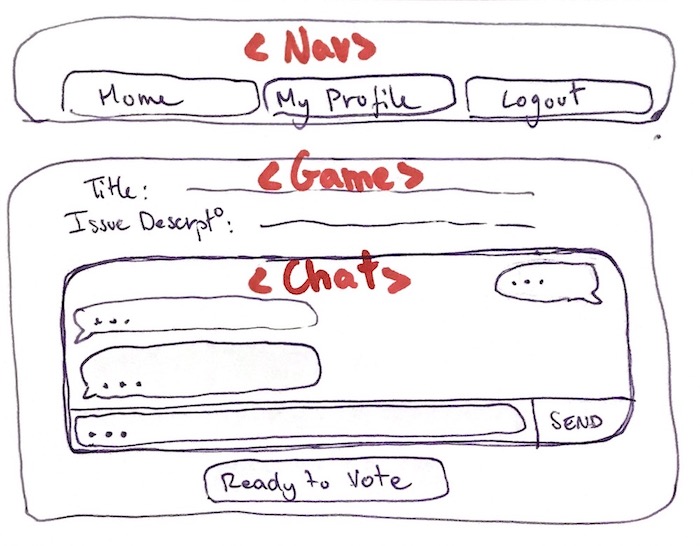 <Nav>
Home My Profile Logout
<Game>
Title:
Issue Descrptº:
<Chat>
...
...
...
... SEND
Ready to Vote